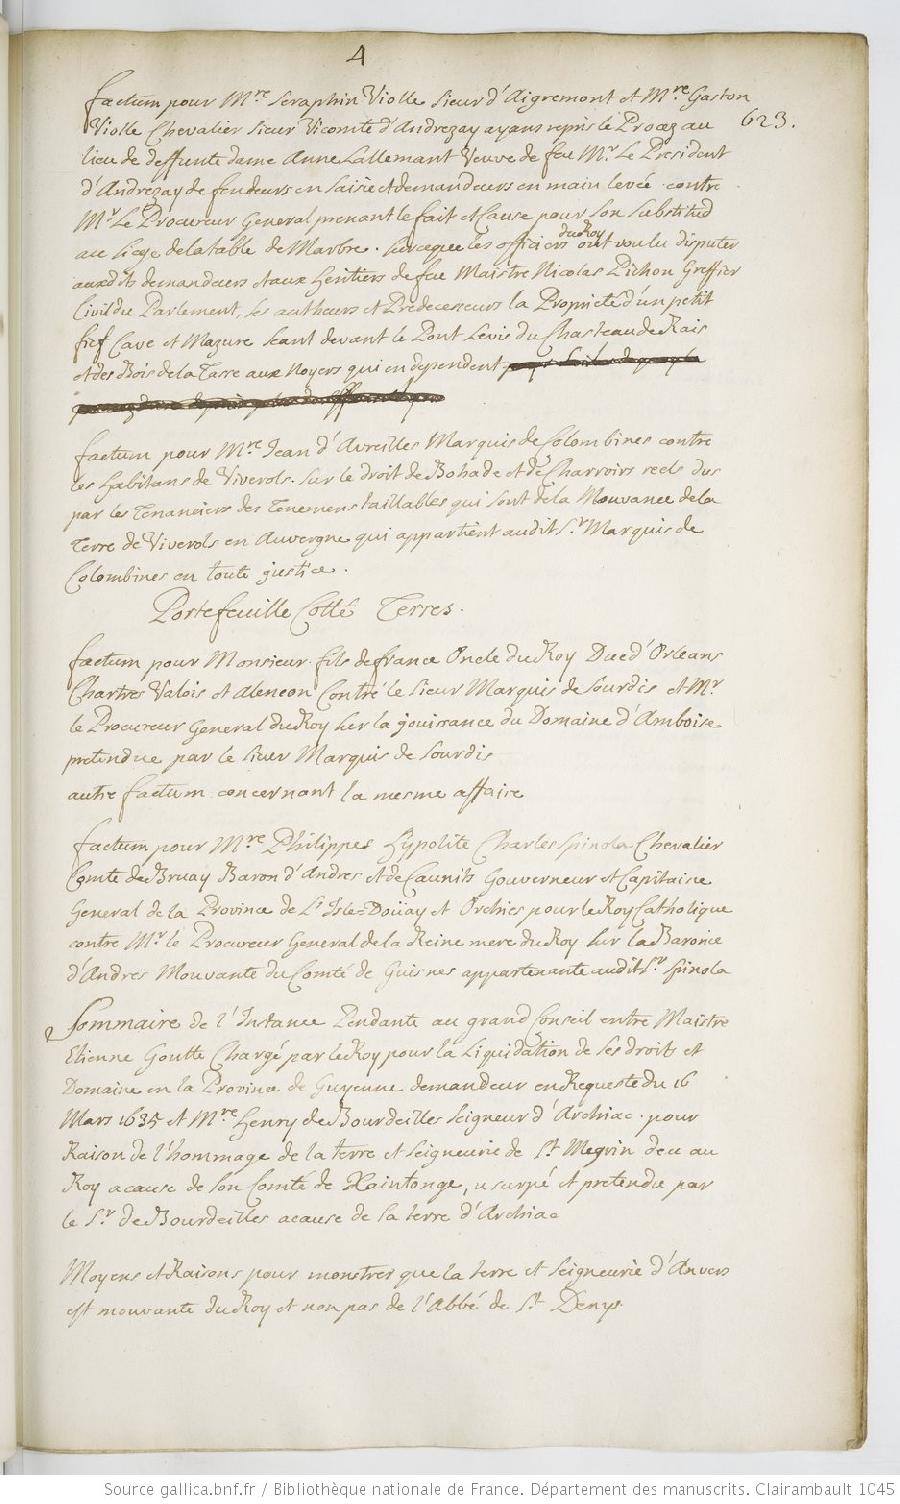 4
623.
factum pour Mre Seraphin Violle Sieur d'Aigremont et Mre Gaston
Violle Chevalier Sieur Vicomte d'Andrezay ayans repris le Procez au
lieu de deffunte dame Anne Lallemant Veuve de feu Mr Le President
d'Andrezay defendeurs en Saisie et demandeurs en main levée. contre
Mr Le Procureur General prenant le fait et Cause pour Son Substitud
au Siege de la table de Marbre. Surceque les officiers du Roy ont voulu disputer
auxdits demandeurs et aux heritiers de feu Maistre Nicolas Pichon Greffier
Civil du Parlement, Ses autheurs et Predecesseurs la Proprieté d'un petit
fief Cave et Mazure Seant devant le Pont Levis du Chasteau de Rais
et des Bois de la Tarre aux Noyers qui en dependent
factum pour Mre Jean d'Avreilles Marquis de Colombines contre
les habitans de Viverols. Sur le droit de Bohade et de Charroirs reels dus
par les Tenanciers des Tenemens taillables qui Sont de la Mouvance de la
Terre de Viverols en Auvergne qui appartient audit Sr Marquis de
Colombines en toute justice.
Portefeuille Cotté Terres.
factum pour Monsieur fils de france Oncle du Roy Duc d'Orleans
Chartres Valois et Alencon Contre le Sieur Marquis de Sourdis et Mr
le Procureur General du Roy Sur la jouissance du Domaine d'Amboise
pretendue par le Sieur Marquis de Sourdis
autre factum concernant la mesme affaire
factum pour Mre Philippes Hypolite Charles Spinola Chevalier
Comte de Bruay Baron d'Andres et de Caunits Gouverneur et Capitaine
General de la Province de L'Isle=Doüay et Orchies pour le Roy Catholique
contre Mr le Procureur General de la Reine mere du Roy Sur la Baronie
d'Andres Mouvante du Comté de Guisnes appartenante audit Sr Spinola
Sommaire de l'Instance Pendante au grand Conseil entre Maistre
Etienne Goutte Chargé par le Roy pour la Liquidation de Ses droits et
Domaine en la Province de Guyenne demandeur en Requeste du 16
Mars 1635 et Mre Henry de Bourdeilles Seigneur d'Archiac. pour
Raison de l'hommage de la terre et Seigneurie de St Megrin deu au
Roy a cause de Son Comté de Xaintonge, usurpé et pretendu par
le Sr de Bourdeilles acause de Sa terre d'Archiac
Moyens et Raisons pour monstrer que la terre et Seigneurie d'Anvers
est mouvante du Roy et non pas de l'Abbé de St Denys.
Source gallica.bnf.fr / Bibliothèque nationale de France. Département des manuscrits. Clairambault 1045